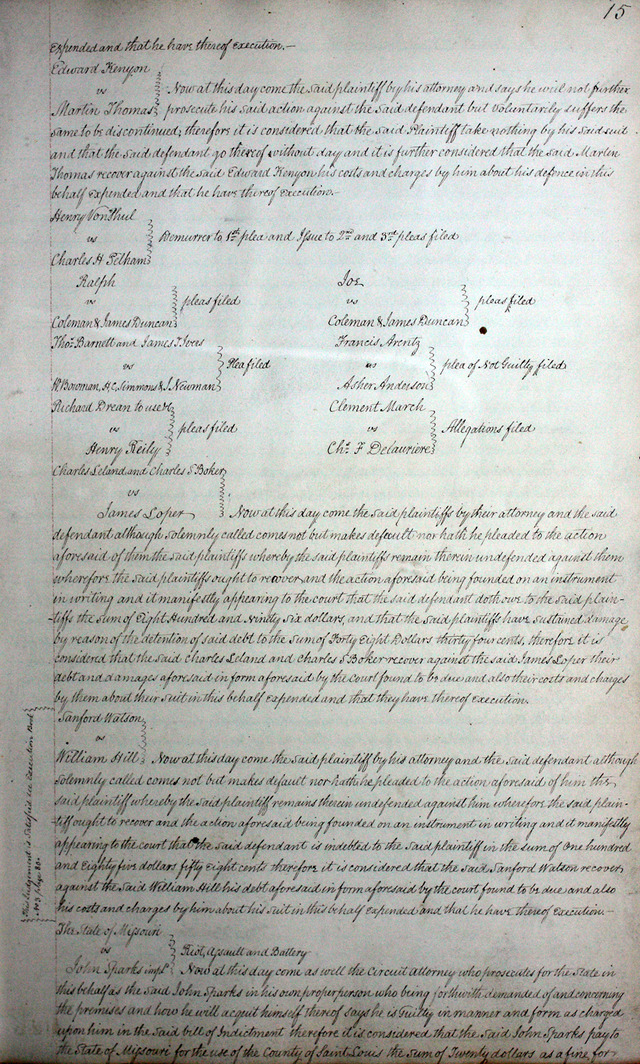 15
Expended and that he have thereof execution.—
Edward Kenyon
vs Now at this day come the said plaintiff by his attorney and says he will not further
Martin Thomas prosecute his said action against the said defendant but voluntarily suffers the
same to be discontinued; therefore it is considered that the said Plaintiff take nothing by his said suit
and that the said defendant go thereof without day and it is further considered that the said Martin
Thomas recover against the said Edward Kenyon his costs and charges by him about his defence in this
behalf expended and that he have thereof execution.—
Henry VonPhul
vs Demurrer to 1st plea and Issue to 2nd and 3rd pleas filed
Charles H Pelham
Ralph
vs pleas filed
Coleman & James Duncan
Joe
vs pleas filed
Coleman & James Duncan
Thos. Barnett and James T Ives
vs Plea filed
Bowman, H.C. Simmons & J Newman
Francis Arentz
vs plea of Not Guilty filed
Asher Anderson
Richard Drean to use
vs pleas filed
Henry Reily
Clement March
vs Allegations filed
Chs. F Delauriere
Charles Leland and Charles S Boker
vs
James Loper Now at this day come the said plaintiffs by their attorney and the said
defendant although solemnly called comes not but makes default nor hath he pleaded to the action
aforesaid of them the said plaintiffs whereby the said plaintiffs remain therein undefended against them
wherefore the said plaintiffs ought to recover and the action aforesaid being founded on an instrument
in writing and it manifestly appearing to the court that the said defendant doth owe to the said plain-
-tiffs the sum of Eight Hundred and Ninety Six dollars, and that the said plaintiffs have sustained damage
by reason of the detention of said debt to the sum of Forty Eight Dollars thirty four cents, therefore it is
considered that the said Charles Leland and Charles S Boker recover against the said James Loper their
debt and damages aforesaid in form aforesaid by the court found to be due and also their costs and charges
by them about their suit in this behalf expended and that they have thereof execution.
Sanford Watson
vs
William Hill Now at this day come the said plaintiff by his attorney and the said defendant although
solemnly called comes not but makes default nor hath he pleaded to the action aforesaid of him the
said plaintiff whereby the said plaintiff remains therein undefended against him wherefore the said plain-
-tiff ought to recover and the action aforesaid being founded on an instrument in writing and it manifestly
appearing to the court that the said defendant is indebted to the said plaintiff in the sum of One hundred
and Eighty five dollars fifty eight cents therefore it is considered that the said Sanford Watson recover
against the said William Hill his debt aforesaid in form aforesaid by the court found to be due and also
his costs and charges by him about his suit in this behalf expended and that he have thereof execution—
This Judgement is Satisfied see Execution Book
No 3 Page
The State of Missouri
vs Riot, Assault and Battery
John Sparks impd. Now at this day come as well the Circuit Attorney who prosecutes for the State in
this behalf as the said John Sparks in his own proper person who being forthwith demanded of and concerning
the premises and how he will acquit himself thereof says he is Guilty in manner and form as charged
upon him in the said bill of Indictment therefore it is considered that the said John Sparks pay to
the State of Missouri for the use of the County of Saint Louis the sum of Twenty dollars as a fine for